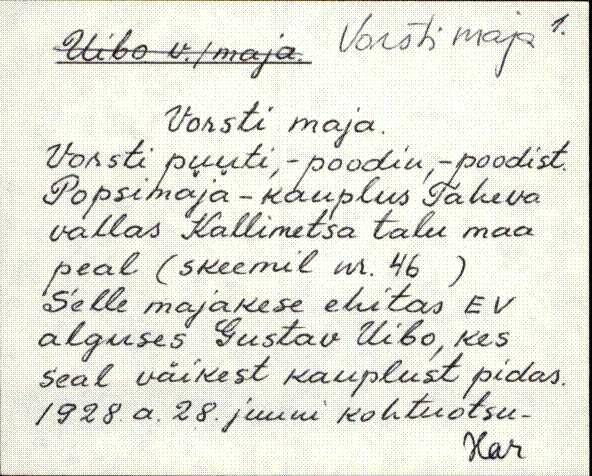 Uibo v./maja. Vorsti maja 1.
Vorsti maja.
Vorsti puuti, -poodin, -poodist.
Popsimaja - kauplus Taheva
vallas Kallimetsa talu maa
peal (skeemil nr. 46 )
Selle majakese ehitas EV
alguses Gustav Uibo, kes
seal väikest kauplust pidas.
1928. a. 28. juuni kohtuotsu-
Har